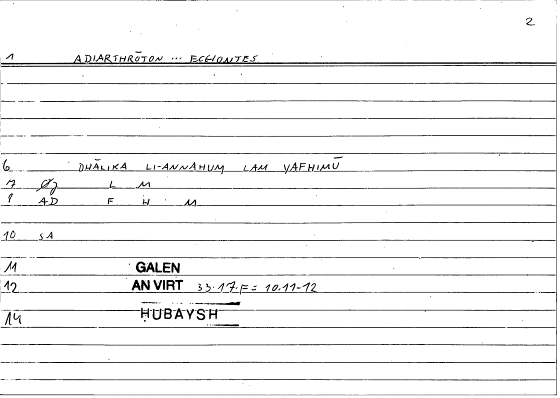 2
1 ADIARTHRŌTON ... ECHONTES
6 DHĀLIKA LI-ANNAHUM LAM YAFHIMŪ
7 Øj L M
8 AD F H M
10 SA
11 GALEN
12 AN VIRT 33.17 F = 10.11-12
14 ḤUBAYSH